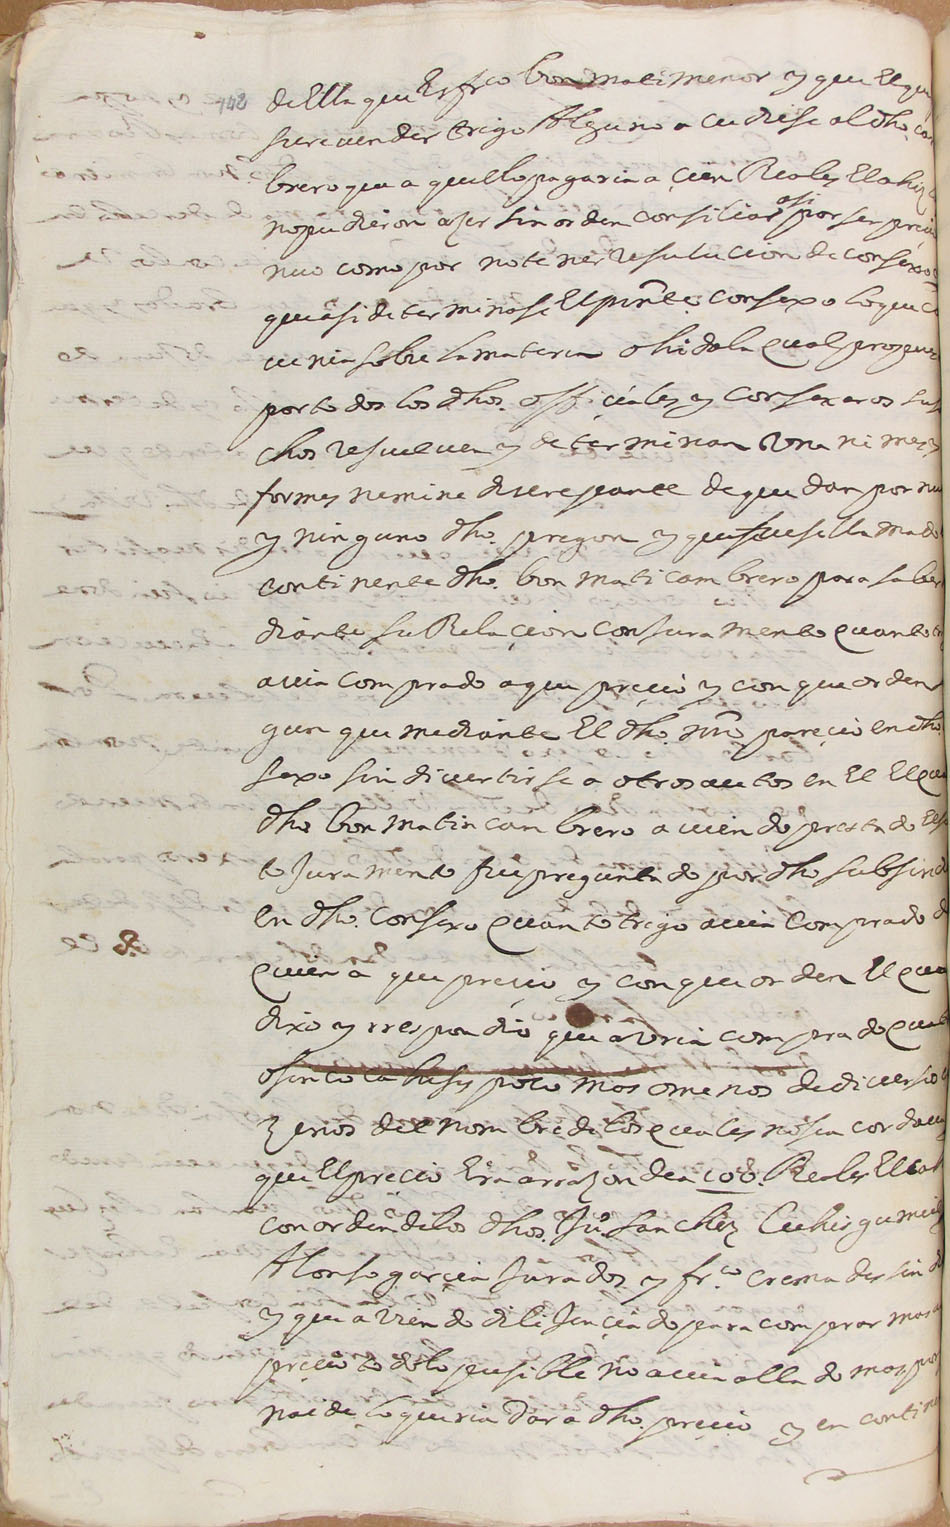 142
de Ella que Es fr.co bonmati menor y que El que
que vender trigo Alguno acudiese al dho. cam
brero que aquello pagaria a cien Reales El
no pudieron azer sin orden consiliar asi por ser precio
como por no tener resulucion de consexo
que asi determinase El pnte. consexo lo que
sobre la materia ohida la qual
por todos los dhos. officiales y consexeros
chos resuelven y determinan
formes nemine discrepante de que dan por nu
y ninguno dho. pregon y que fuese llamado
continente dho. bonmati cambrero para saber
diante su Relacion con Juramento quanto
avia comprado a que precio y con que orden
que mediante El dho. pareció en dho.
sexo sin divertirse a otros autos en El El qua
dho bonmatin cambrero aviendo prestado
to Juramento fue preguntado por dho subsindi
en dho. consexo quanto trigo avia comprado
quien a que precio y con que orden El qua
dixo y rrespondio que avria comprado
o sinco cahises poco mas o menos de diversos
del nombre de los quales no se acordava
que El precio Era a rrazon de a 100. Reales El
con orden de los dhos. Ju.o Sanchez
Alonso garcia Jurados y fr.co cremades sin
y que aviendo dilijenciado para comprar mas
precio todo lo pusible no avia allado mas
nai de lo queria Dar a dho. precio y en contin